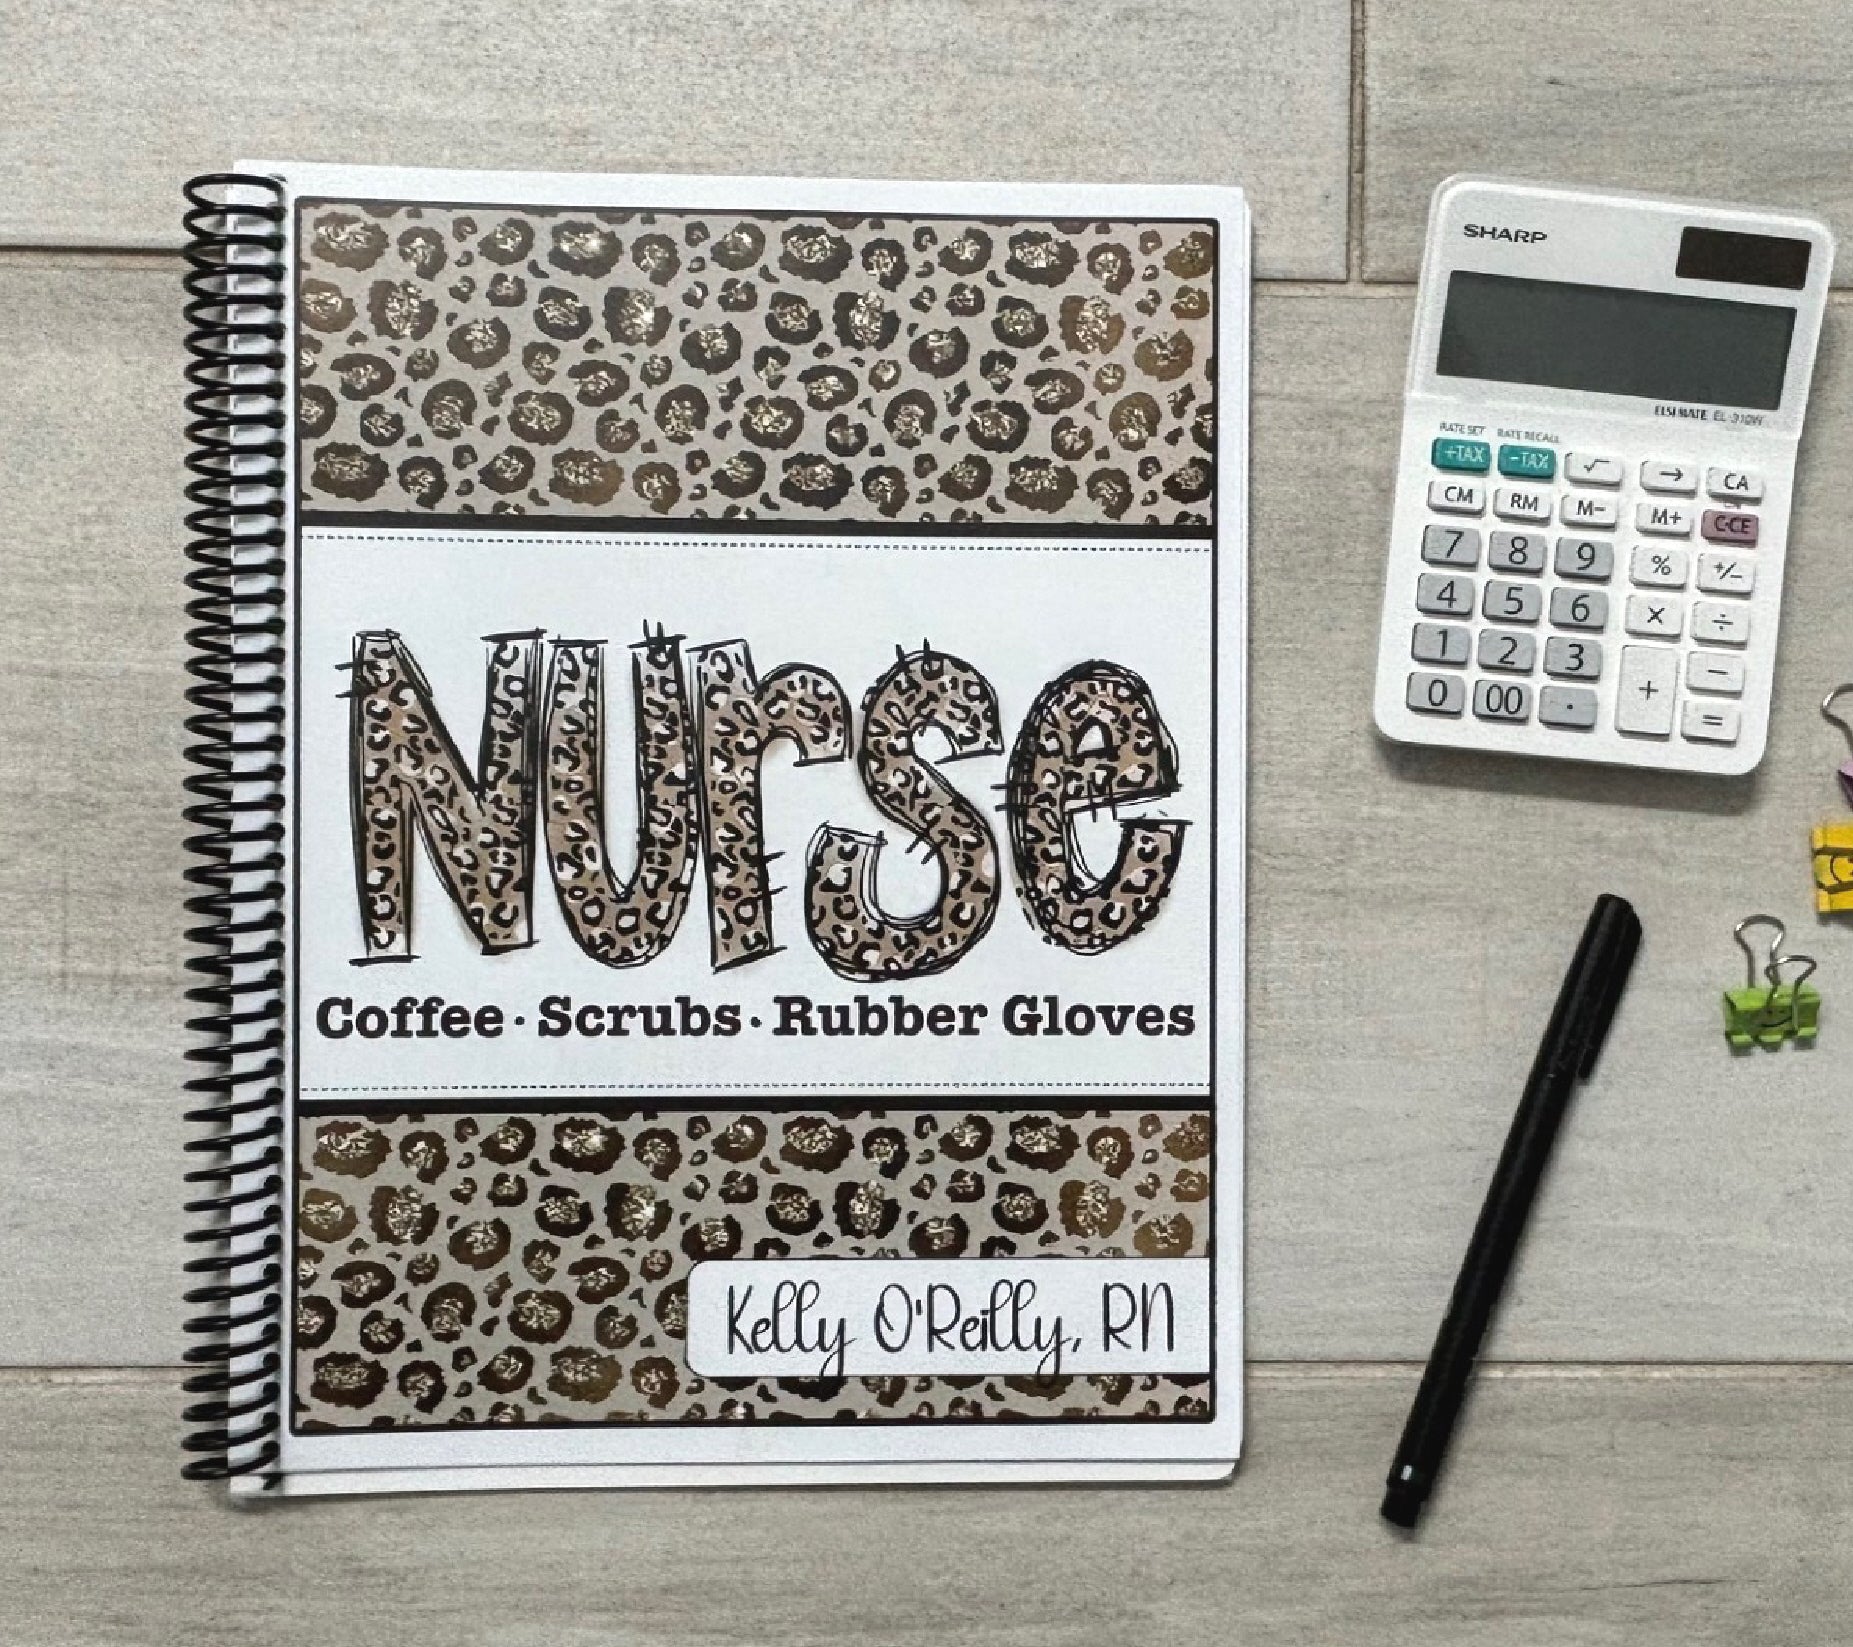 Nurse
Coffee · Scrubs · Rubber Gloves
Kelly O'Reilly, RN
SHARP
ELSI MATE EL-310W
RATE SET RATE RECALL
+TAX -TAX √ → CA
CM RM M- M+ C·CE
7 8 9 % +/-
4 5 6 × ÷
1 2 3 + −
0 00 · =